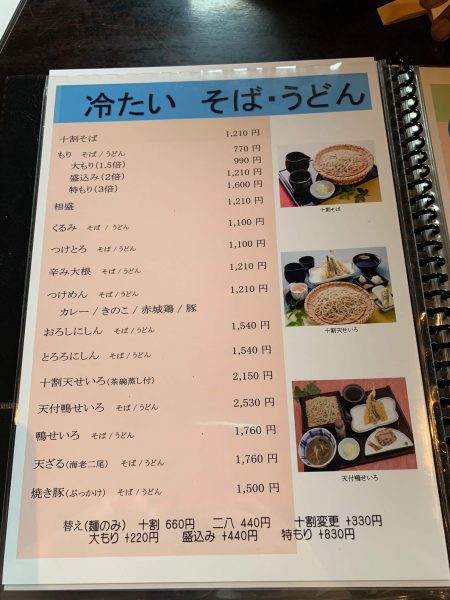 冷たい そば・うどん
十割そば 1,210 円
もり そば/うどん 770 円
大もり(1.5倍) 990 円
盛込み(2倍) 1,210 円
特もり(3倍) 1,600 円
相盛 1,210 円
くるみ そば / うどん 1,100 円
つけとろ そば/うどん 1,100 円
辛み大根 そば/うどん 1,210 円
つけめん そば/うどん 1,210 円
カレー / きのこ / 赤城鶏 / 豚
おろしにしん そば/うどん 1,540 円
とろろにしん そば/うどん 1,540 円
十割天せいろ(茶碗蒸し付) 2,150 円
天付鴨せいろ そば/うどん 2,530 円
鴨せいろ そば/うどん 1,760 円
天ざる(海老二尾) そば/うどん 1,760 円
焼き豚(ぶっかけ) そば/うどん 1,500 円
替え(麺のみ) 十割 660円 二八 440円 十割変更 +330円
大もり +220円 盛込み +440円 特もり +830円
十割そば
十割天せいろ
天付鴨せいろ